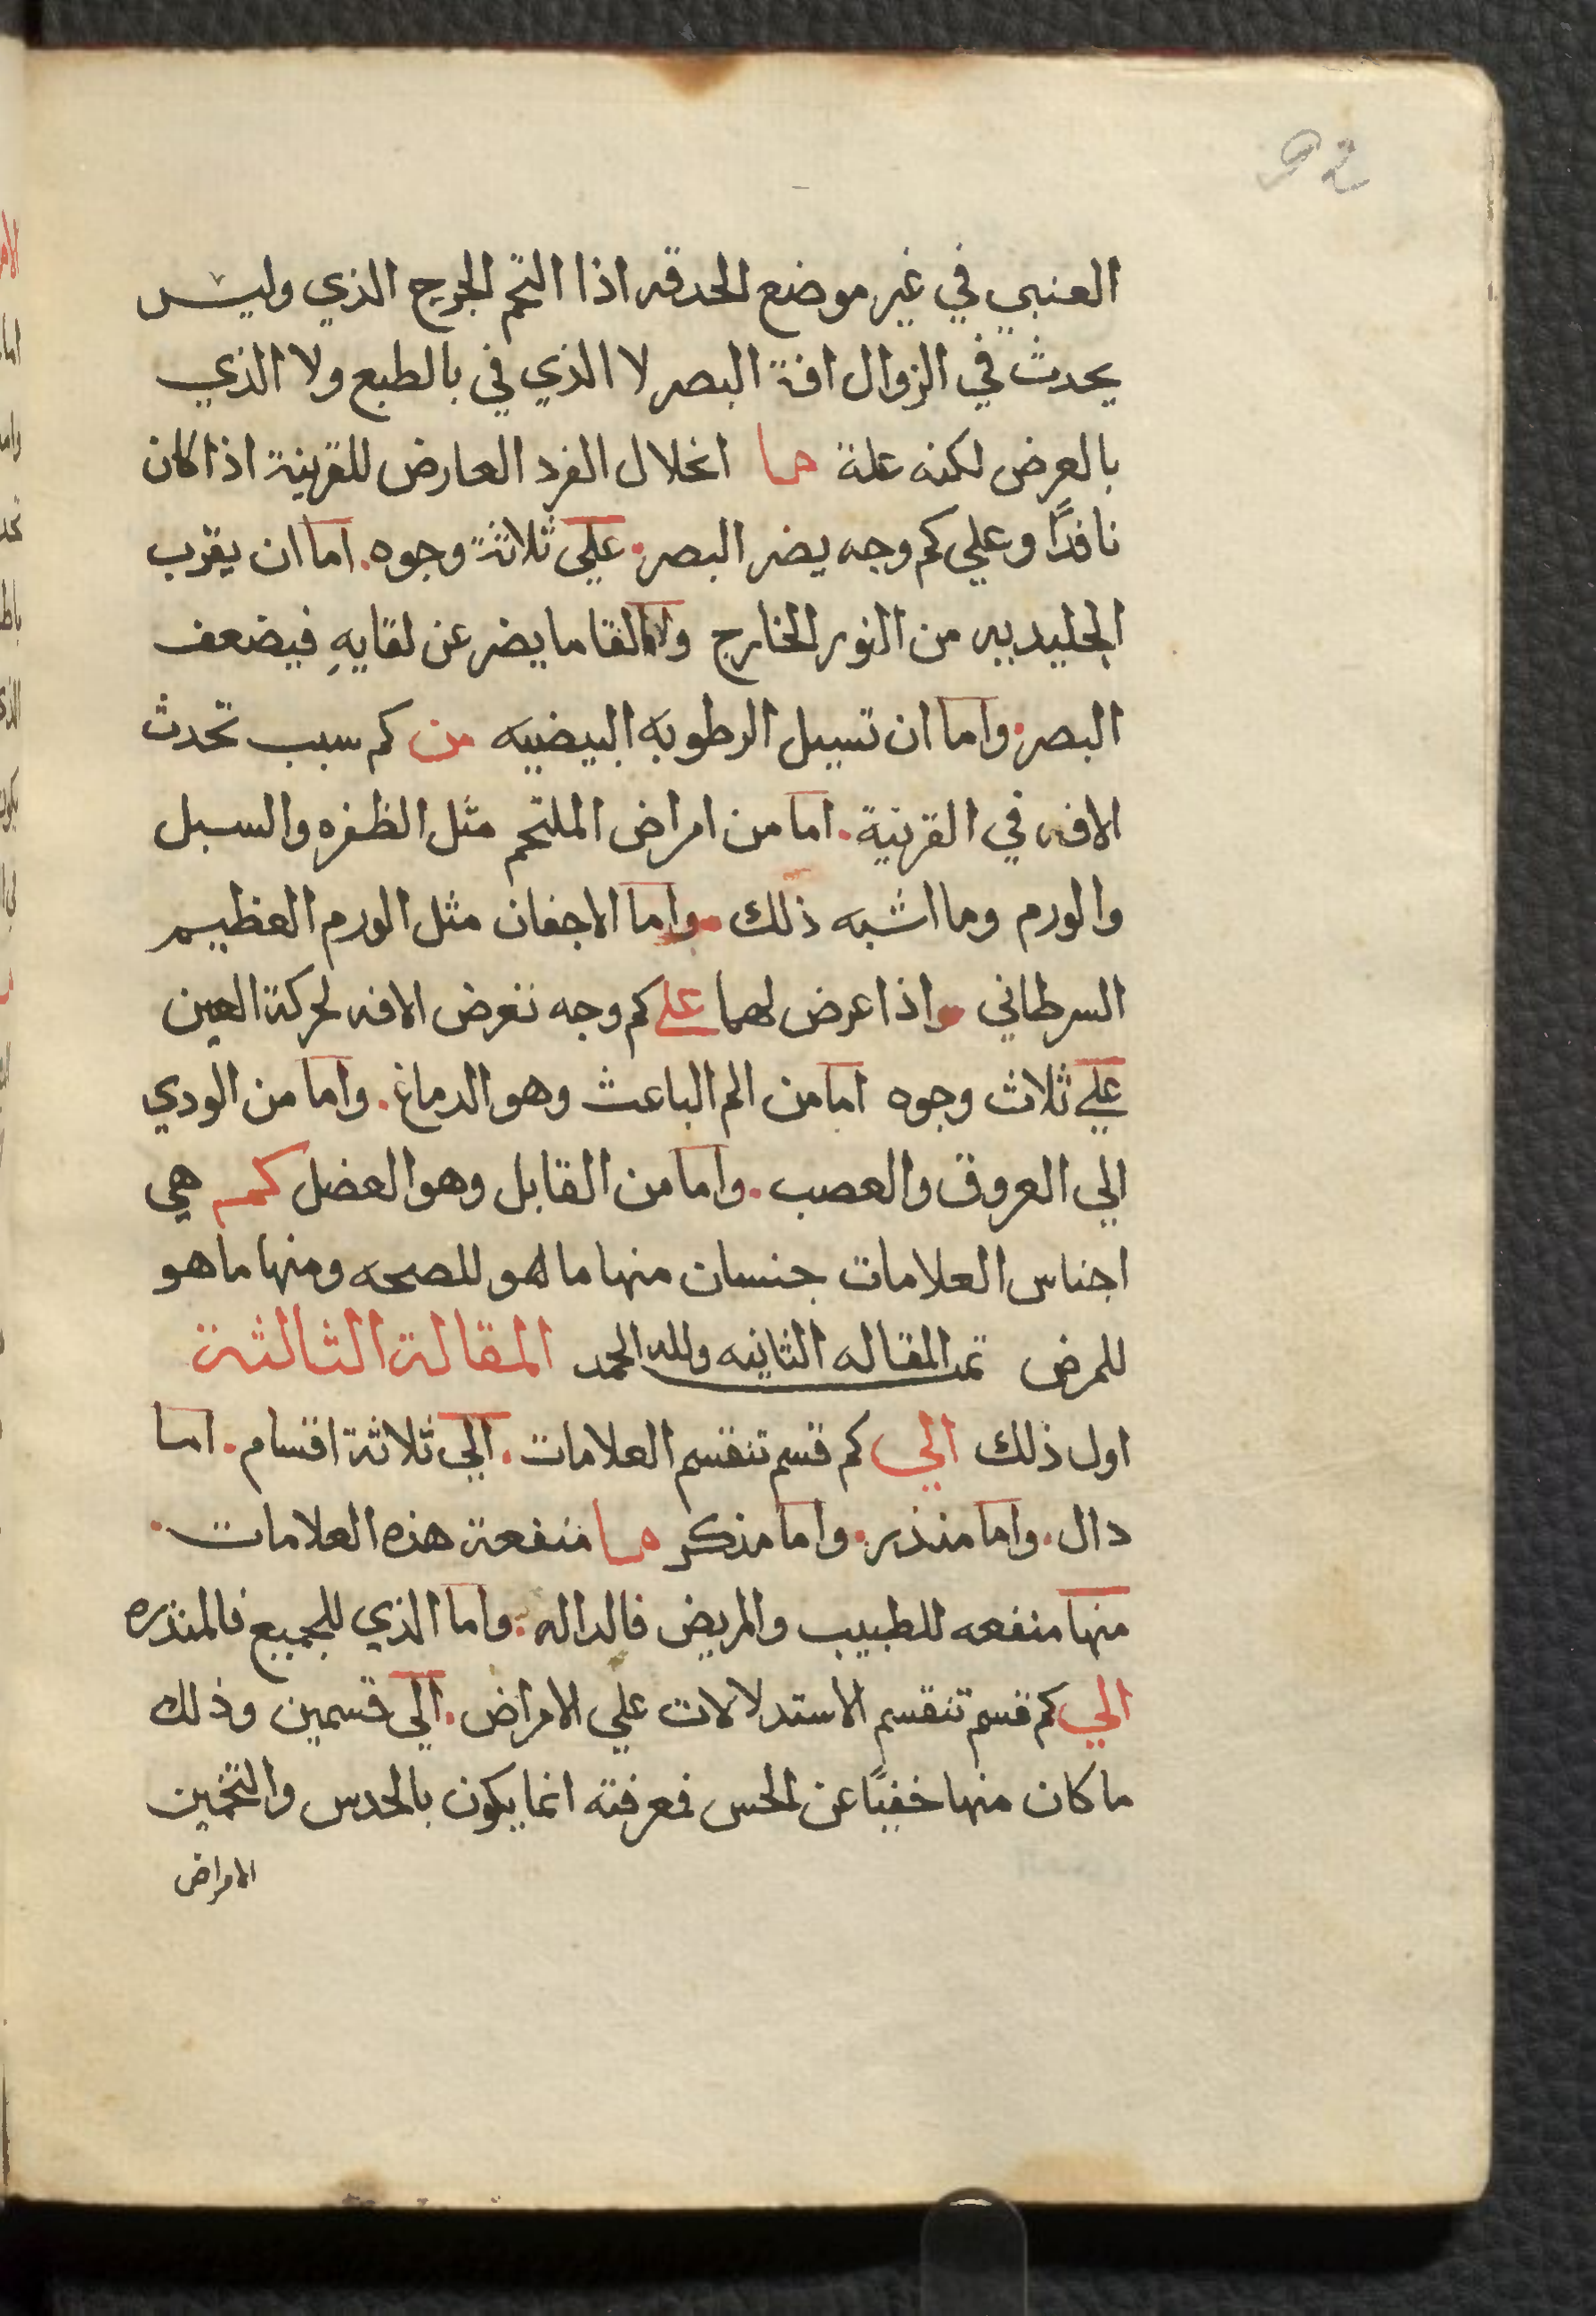 92
العنبي في غير موضع الحدقه اذا التحم الجرح الذي وليس
يحدث في الزوال افة البصر لا الذي في بالطبع ولا الذي
بالعرض لكنه علة ما انحلال الفرد العارض للقرنية اذا كان
نافدًا وعلي كم وجه يضر البصر. علي ثلاثة وجوه. اما ان يقرب
الجليديه من النور الخارج والقا ما يضر عن لقايهِ فيضعف
البصر. واما ان تسيل الرطوبه البيضيه من كم سبب تحدث
الافه في القرنية. اما من امراض الملتحم مثل الظفره والسبل
والورم وما اشبه ذلك. واما الاجفان مثل الورم العظيم
السرطاني واذا عرض لهما علي كم وجه تعرض الافه لحركة العين
علي ثلاث وجوه اما من الم الباعث وهو الدماغ. واما من الودي
الي العروق والعصب. واما من القابل وهو العضل كم هي
اجناس العلامات جنسان منها ما هو للصحه ومنها ما هو
للمرض تمد المقاله الثانيه ولله الحمد المقالة الثالثة
اول ذلك الي كم قسم تنقسم العلامات. الي ثلاثة اقسام. اما
دال. واما منذر. واما مذكر ما منفعة هذه العلامات.
منها منفعه للطبيب والمريض فالداله. واما الذي للجميع فالمنذره
الي كم قسم تنقسم الاستدلالات علي الامراض. الي قسمين وذلك
ما كان منها خفيًا عن الحس فمعرفته انما يكون بالحدس والتخمين
الامراض